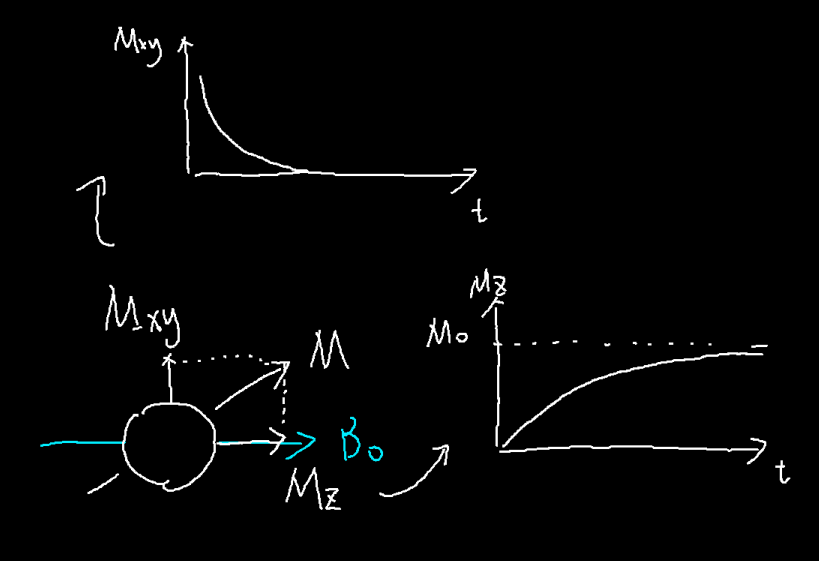 Mxy
t
Mxy
M
B₀
Mz
Mz
M₀
t